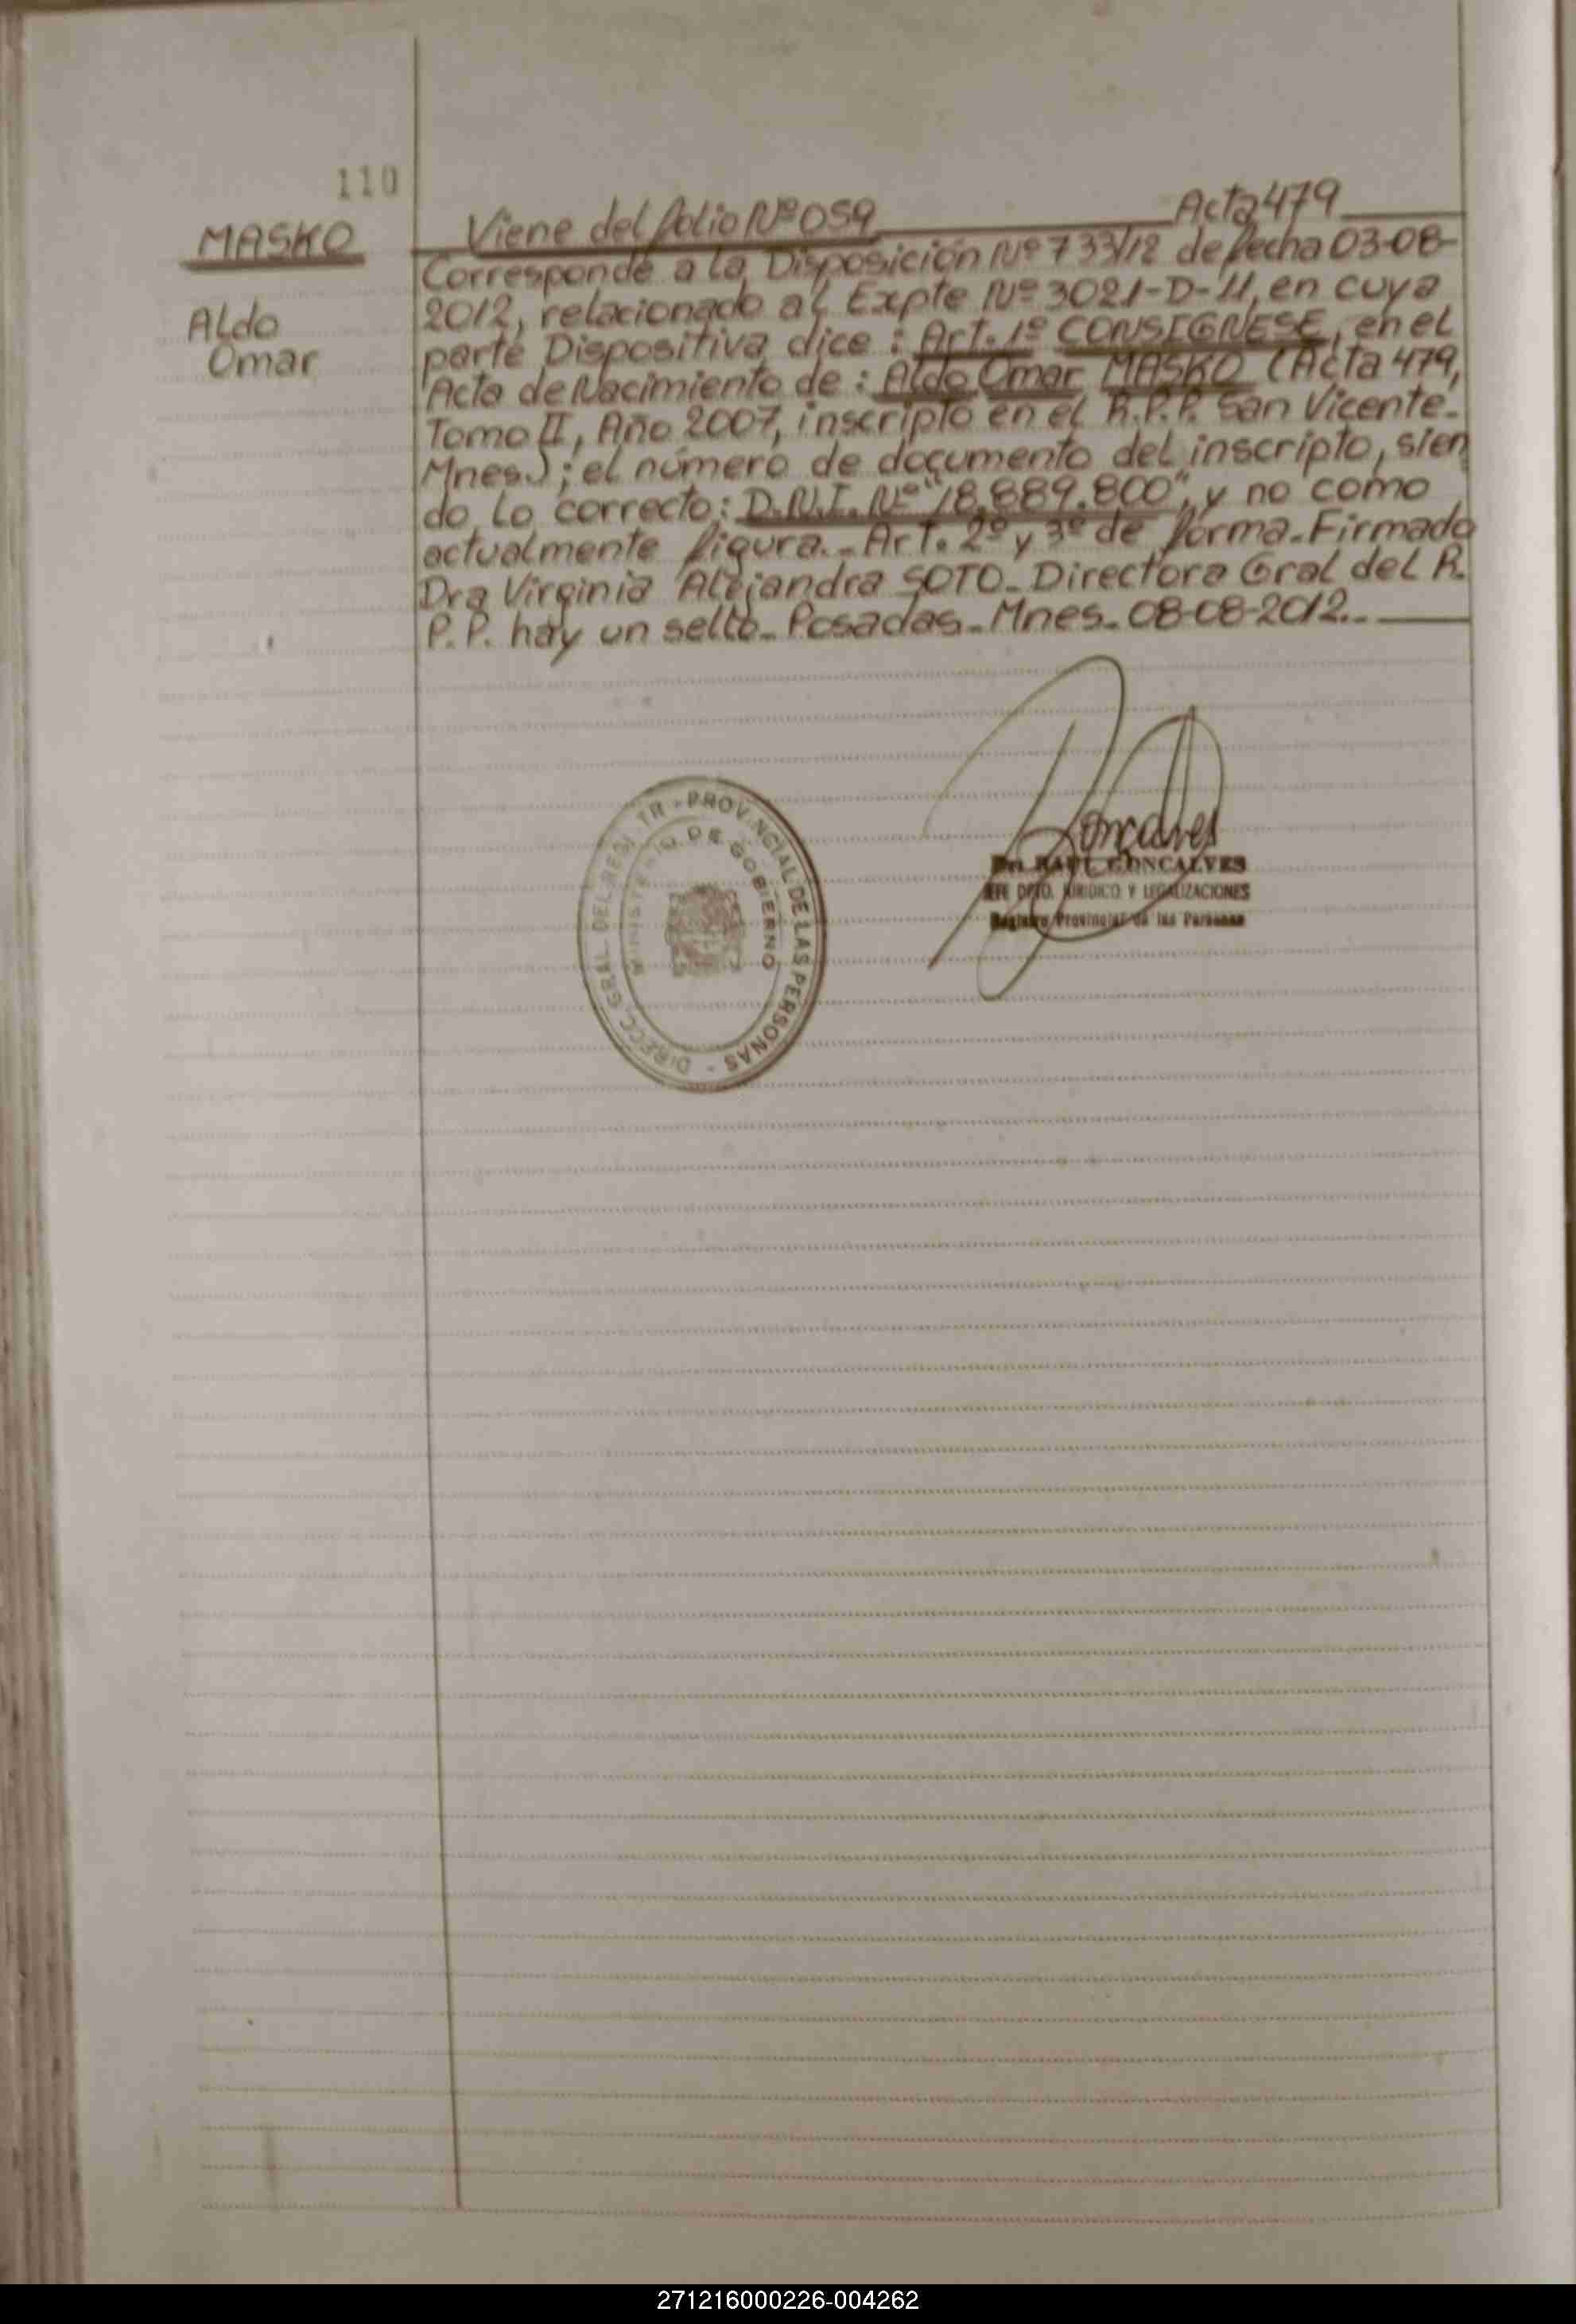 110
MASKO
Aldo
Omar
Viene del folio Nº 059 Acta 479
Corresponde a la Disposición Nº 733/12 de fecha 03-08-
2012, relacionado al Expte Nº 3021-D-11, en cuya
parte Dispositiva dice : Art. 1º CONSIGNESE, en el
Acta de Nacimiento de : Aldo Omar MASKO (Acta 479,
Tomo II, Año 2007, inscripto en el R.P.P. San Vicente-
Mnes.) ; el número de documento del inscripto, sien
do lo correcto : D.N.I. Nº "18.889.800", y no como
actualmente figura.- Art. 2º y 3º de forma. Firmado
Dra Virginia Alejandra SOTO - Directora Gral del R.
P.P. hay un sello - Posadas - Mnes - 08-08-2012.-
DIRECC. GRAL. DEL REGISTR - PROVINCIAL DE LAS PERSONAS -
MINISTERIO DE GOBIERNO
Goncalves
Dr. RAUL GONCALVES
JEFE DPTO. JURIDICO Y LEGALIZACIONES
Registro Provincial de las Personas
271216000226-004262